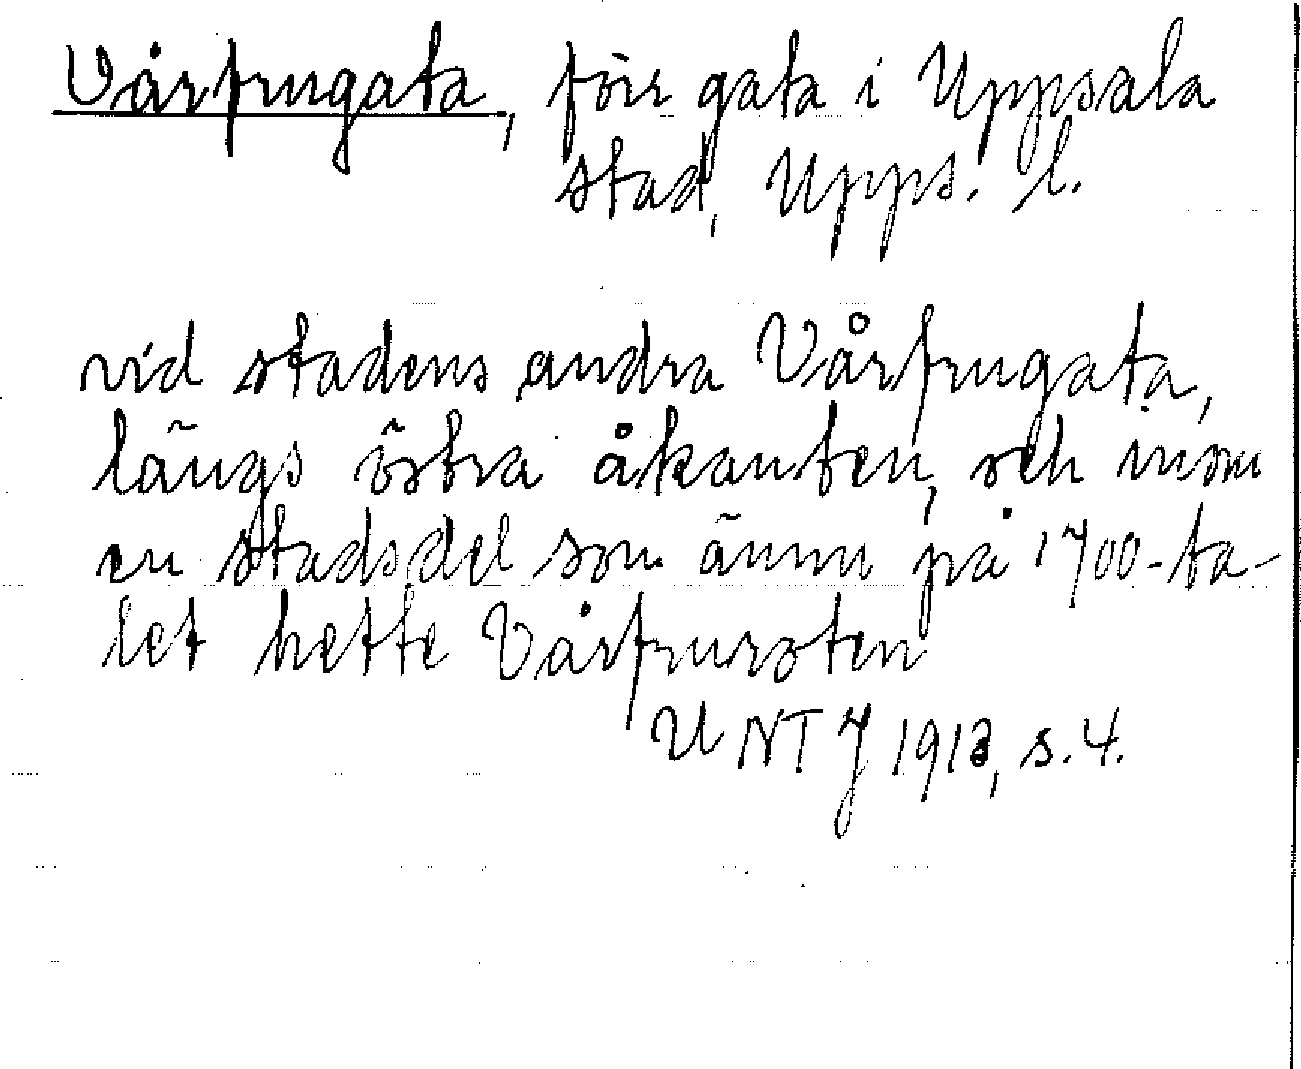 Vårfrugata, förr gata i Uppsala
stad, Upps. l.
vid stadens andra Vårfrugata,
längs östra åkanten, och inom
en stadsdel som ännu på 1700-ta-
let hette Vårfruroten
UNTJ 1913, s. 4.